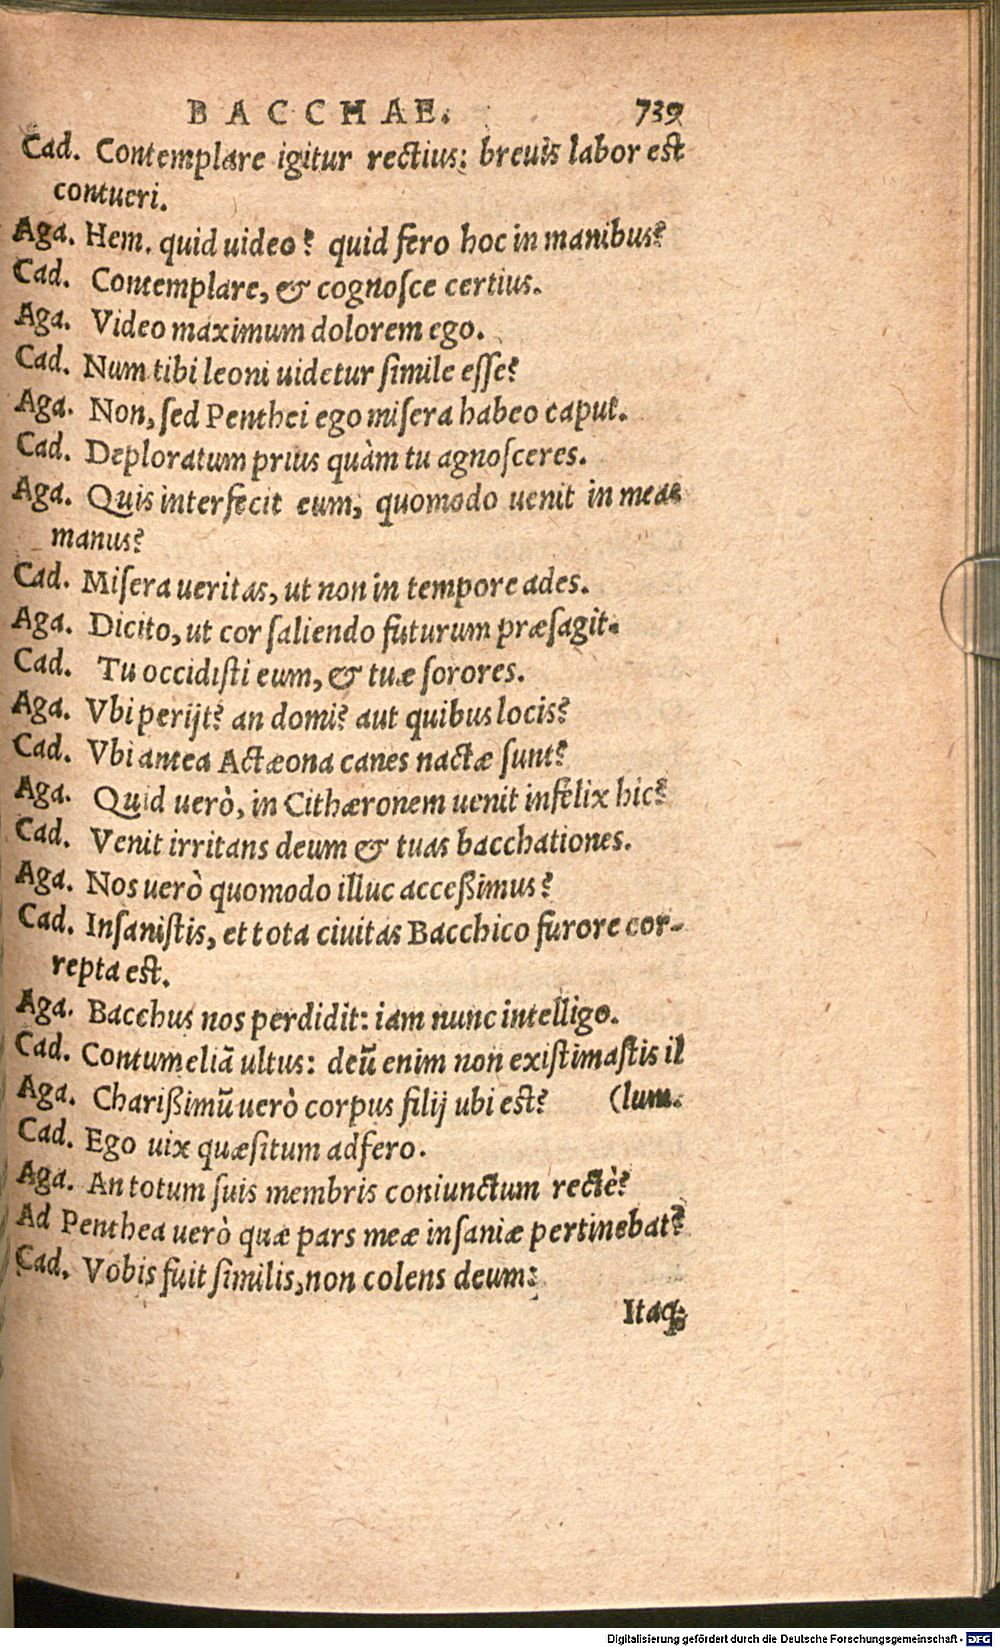 BACCHAE. 739
Cad. Contemplare igitur rectius: breuis labor est
contueri.
Aga. Hem. quid uideo? quid fero hoc in manibus?
Cad. Contemplare, & cognosce certius.
Aga. Video maximum dolorem ego.
Cad. Num tibi leoni uidetur simile esse?
Aga. Non, sed Penthei ego misera habeo caput.
Cad. Deploratum prius quàm tu agnosceres.
Aga. Quis interfecit eum, quomodo uenit in meas
manus?
Cad. Misera ueritas, ut non in tempore ades.
Aga. Dicito, ut cor saliendo futurum præsagit.
Cad. Tu occidisti eum, & tuæ sorores.
Aga. Vbi perijt? an domi? aut quibus locis?
Cad. Vbi antea Actæona canes nactæ sunt?
Aga. Quid uerò, in Cithæronem uenit infelix hic?
Cad. Venit irritans deum & tuas bacchationes.
Aga. Nos uerò quomodo illuc acceßimus?
Cad. Insanistis, et tota ciuitas Bacchico furore cor-
repta est.
Aga. Bacchus nos perdidit: iam nunc intelligo.
Cad. Contumeliã ultus: deũ enim non existimastis il
Aga. Charißimũ uerò corpus filij ubi est? (lum.
Cad. Ego uix quæsitum adfero.
Aga. An totum suis membris coniunctum rectè?
Ad Penthea uerò quæ pars meæ insaniæ pertinebat?
Cad. Vobis fuit similis, non colens deum:
Itaq;
Digitalisierung gefördert durch die Deutsche Forschungsgemeinschaft - DFG